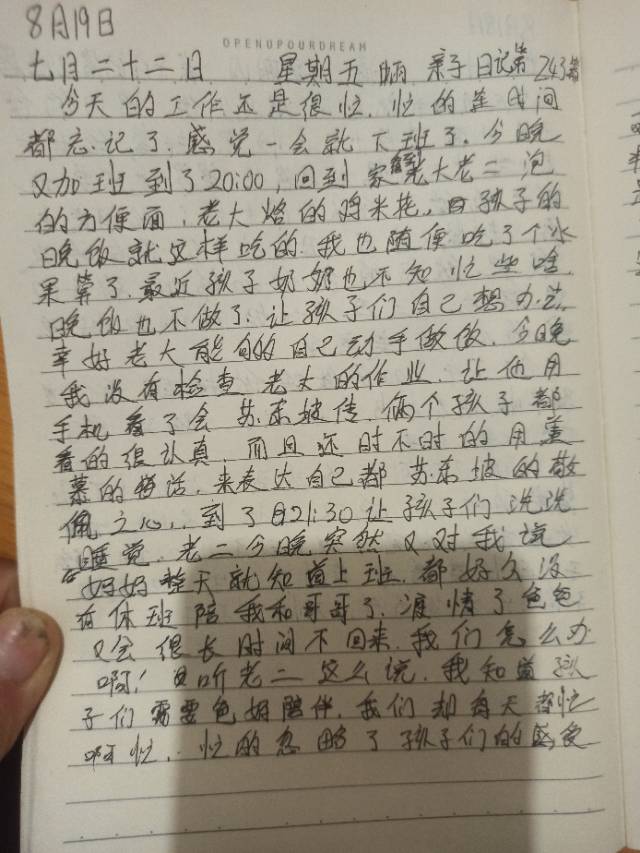 8月19日
OPENUPYOURDREAM
七月二十二日 星期五 晴 亲子日记第243篇
今天的工作还是很忙、忙的连时间
都忘记了、感觉一会就下班了、今晚
又加班到了20:00,回到家老大老二泡
的方便面、老大烙的鸡米花,孩子的
晚饭就这样吃的、我也随便吃了个水
果算了、最近孩子奶奶也不知忙些啥
晚饭也不做了、让孩子们自己想办法
幸好老大能自己动手做饭、今晚
我没有检查老大的作业、让他用
手机看了会苏东坡传、俩个孩子都
看的很认真、而且还时不时的用羡
慕的话、来表达自己都苏东坡的敬
佩之心、到了21:30让孩子们洗洗
睡觉、老二今晚突然又对我说
妈妈整天就知道上班、都好久没
有休班陪我和哥哥了、疫情了爸爸
又会很长时间不回来、我们怎么办
啊!听老二这么说、我知道孩
子们需要爸妈陪伴、我们却每天都忙
啊忙、忙的忽略了孩子们的感受